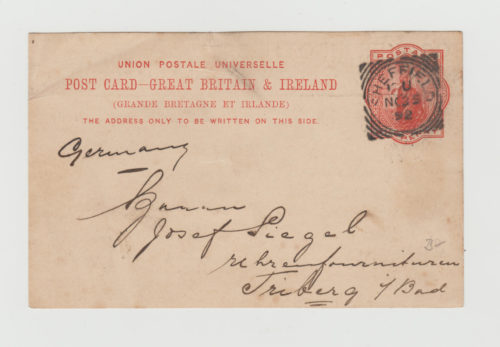 UNION POSTALE UNIVERSELLE
POST CARD—GREAT BRITAIN & IRELAND
(GRANDE BRETAGNE ET IRLANDE)
THE ADDRESS ONLY TO BE WRITTEN ON THIS SIDE.
POSTAGE
SHEFFIELD
NO 25
92
Germany
Herrn
Josef Siegel
Uhrenfournituren
Triberg i/Bad